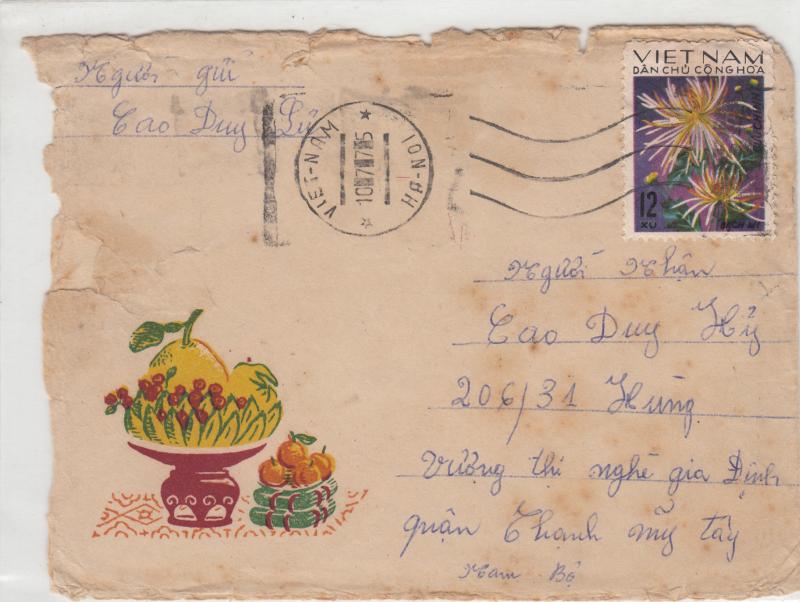 Người gửi
Cao Duy Lữ
VIET-NAM
HA-NOI
10.7.75
VIET NAM
DÂN CHỦ CỘNG HÒA
12
XU
BẠCH MY
Người Nhận
Cao Duy Hỷ
206/31 Hùng
Vương thị nghè gia Định
quận Thạnh mỹ tây
Nam Bộ